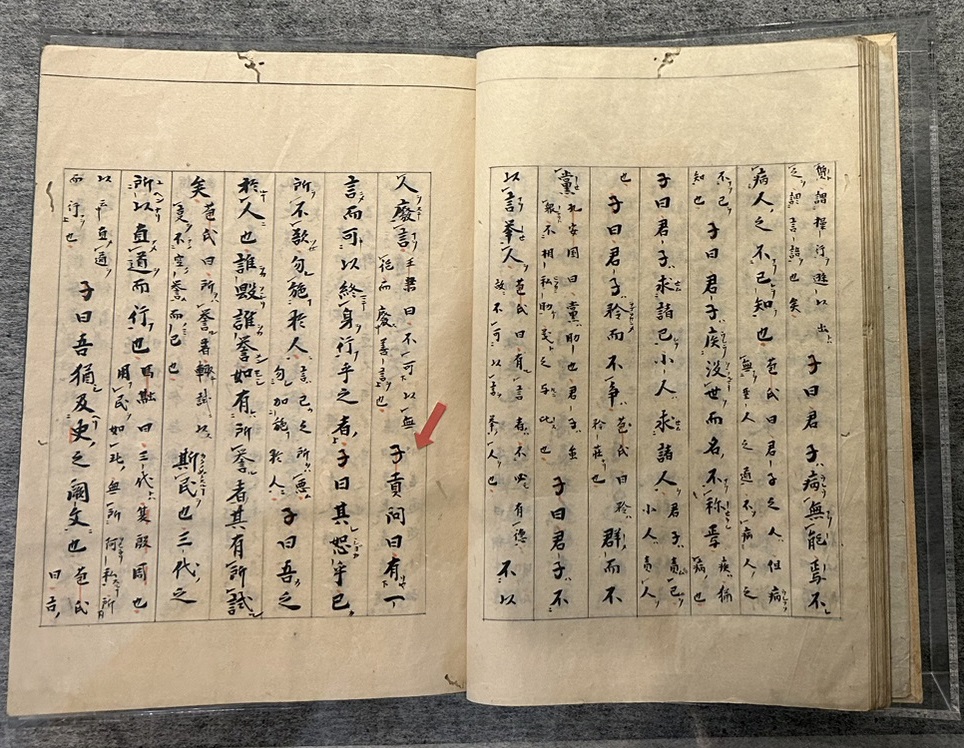 質謂操行遜以出之謂言語也矣 子曰君子病無能焉不
病人之不己知也 苞氏曰君子之人但病無聖人之道不病人之
不己知也 子曰君子疾没世而名不称焉 疾猶病也
子曰君子求諸己小人求諸人 君子責己小人責人
也 子曰君子矜而不爭 苞氏曰矜矜莊也 群而不
黨 孔安国曰黨助也君子雖不相私助義之与比也 子曰君子不
以言擧人 苞氏曰有言者不必有徳故不可以言擧人也 不以
人廢言 王肅曰不可以無徳而廢善言也 子貢問曰有一
言而可以終身行乎之者子曰其恕乎己
所不欲勿施於人 言己之所惡勿加施於人 子曰吾之
於人也誰毀誰譽如有所譽者其有所試
矣 苞氏曰所譽者輙試以不空譽而已也 斯民也三代之
所以直道而行也 馬融曰三代夏殷周也用民如此無所阿私所
以云直道而行也 子曰吾猶及史之闕文也 苞氏曰古